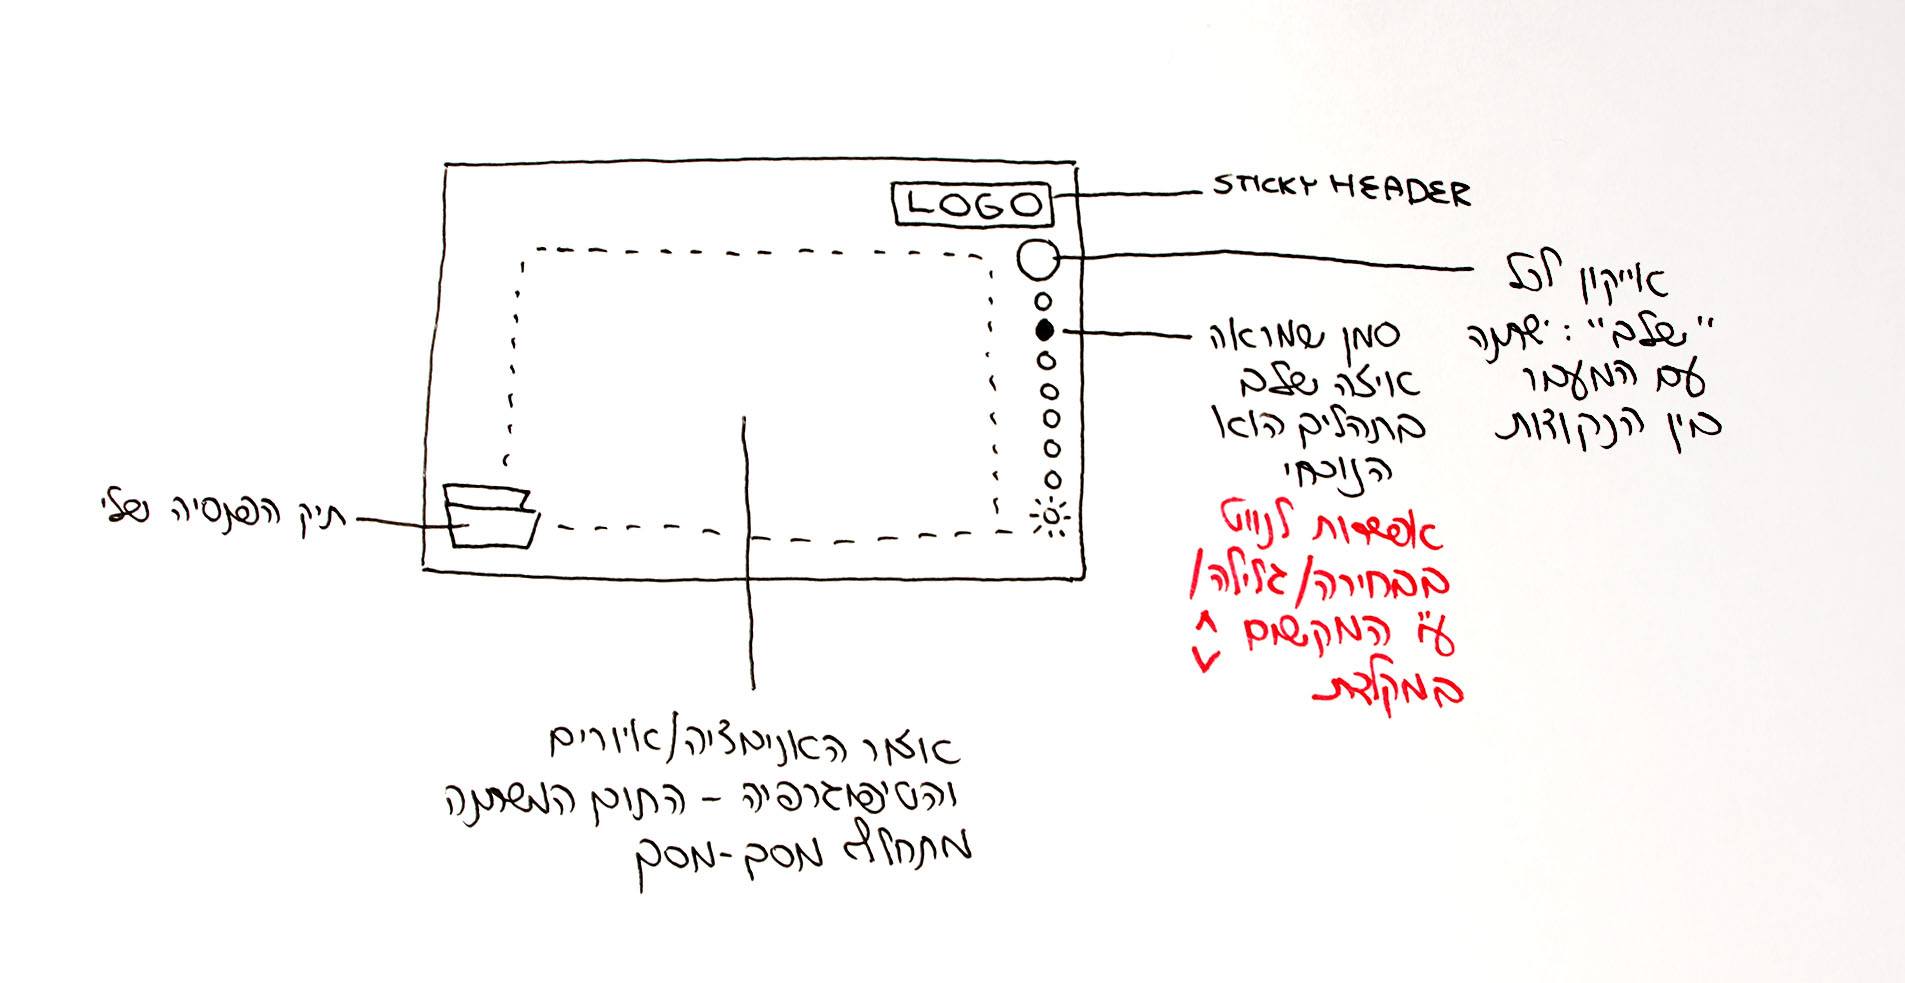 LOGO
STICKY HEADER
אייקון לכל
"שלב": ישתנה
עם המעבר
בין הנקודות
סמן שמראה
איזה שלב
בתהליך הוא
הנוכחי
אפשרות לנווט
בבחירה/גלילה/
ע"י המקשים ^
v
במקלדת
תיק הפנסיה שלי
אזור האנימציה/איורים
והטיפוגרפיה - התוכן המשתנה
מתחלף מסך-מסך